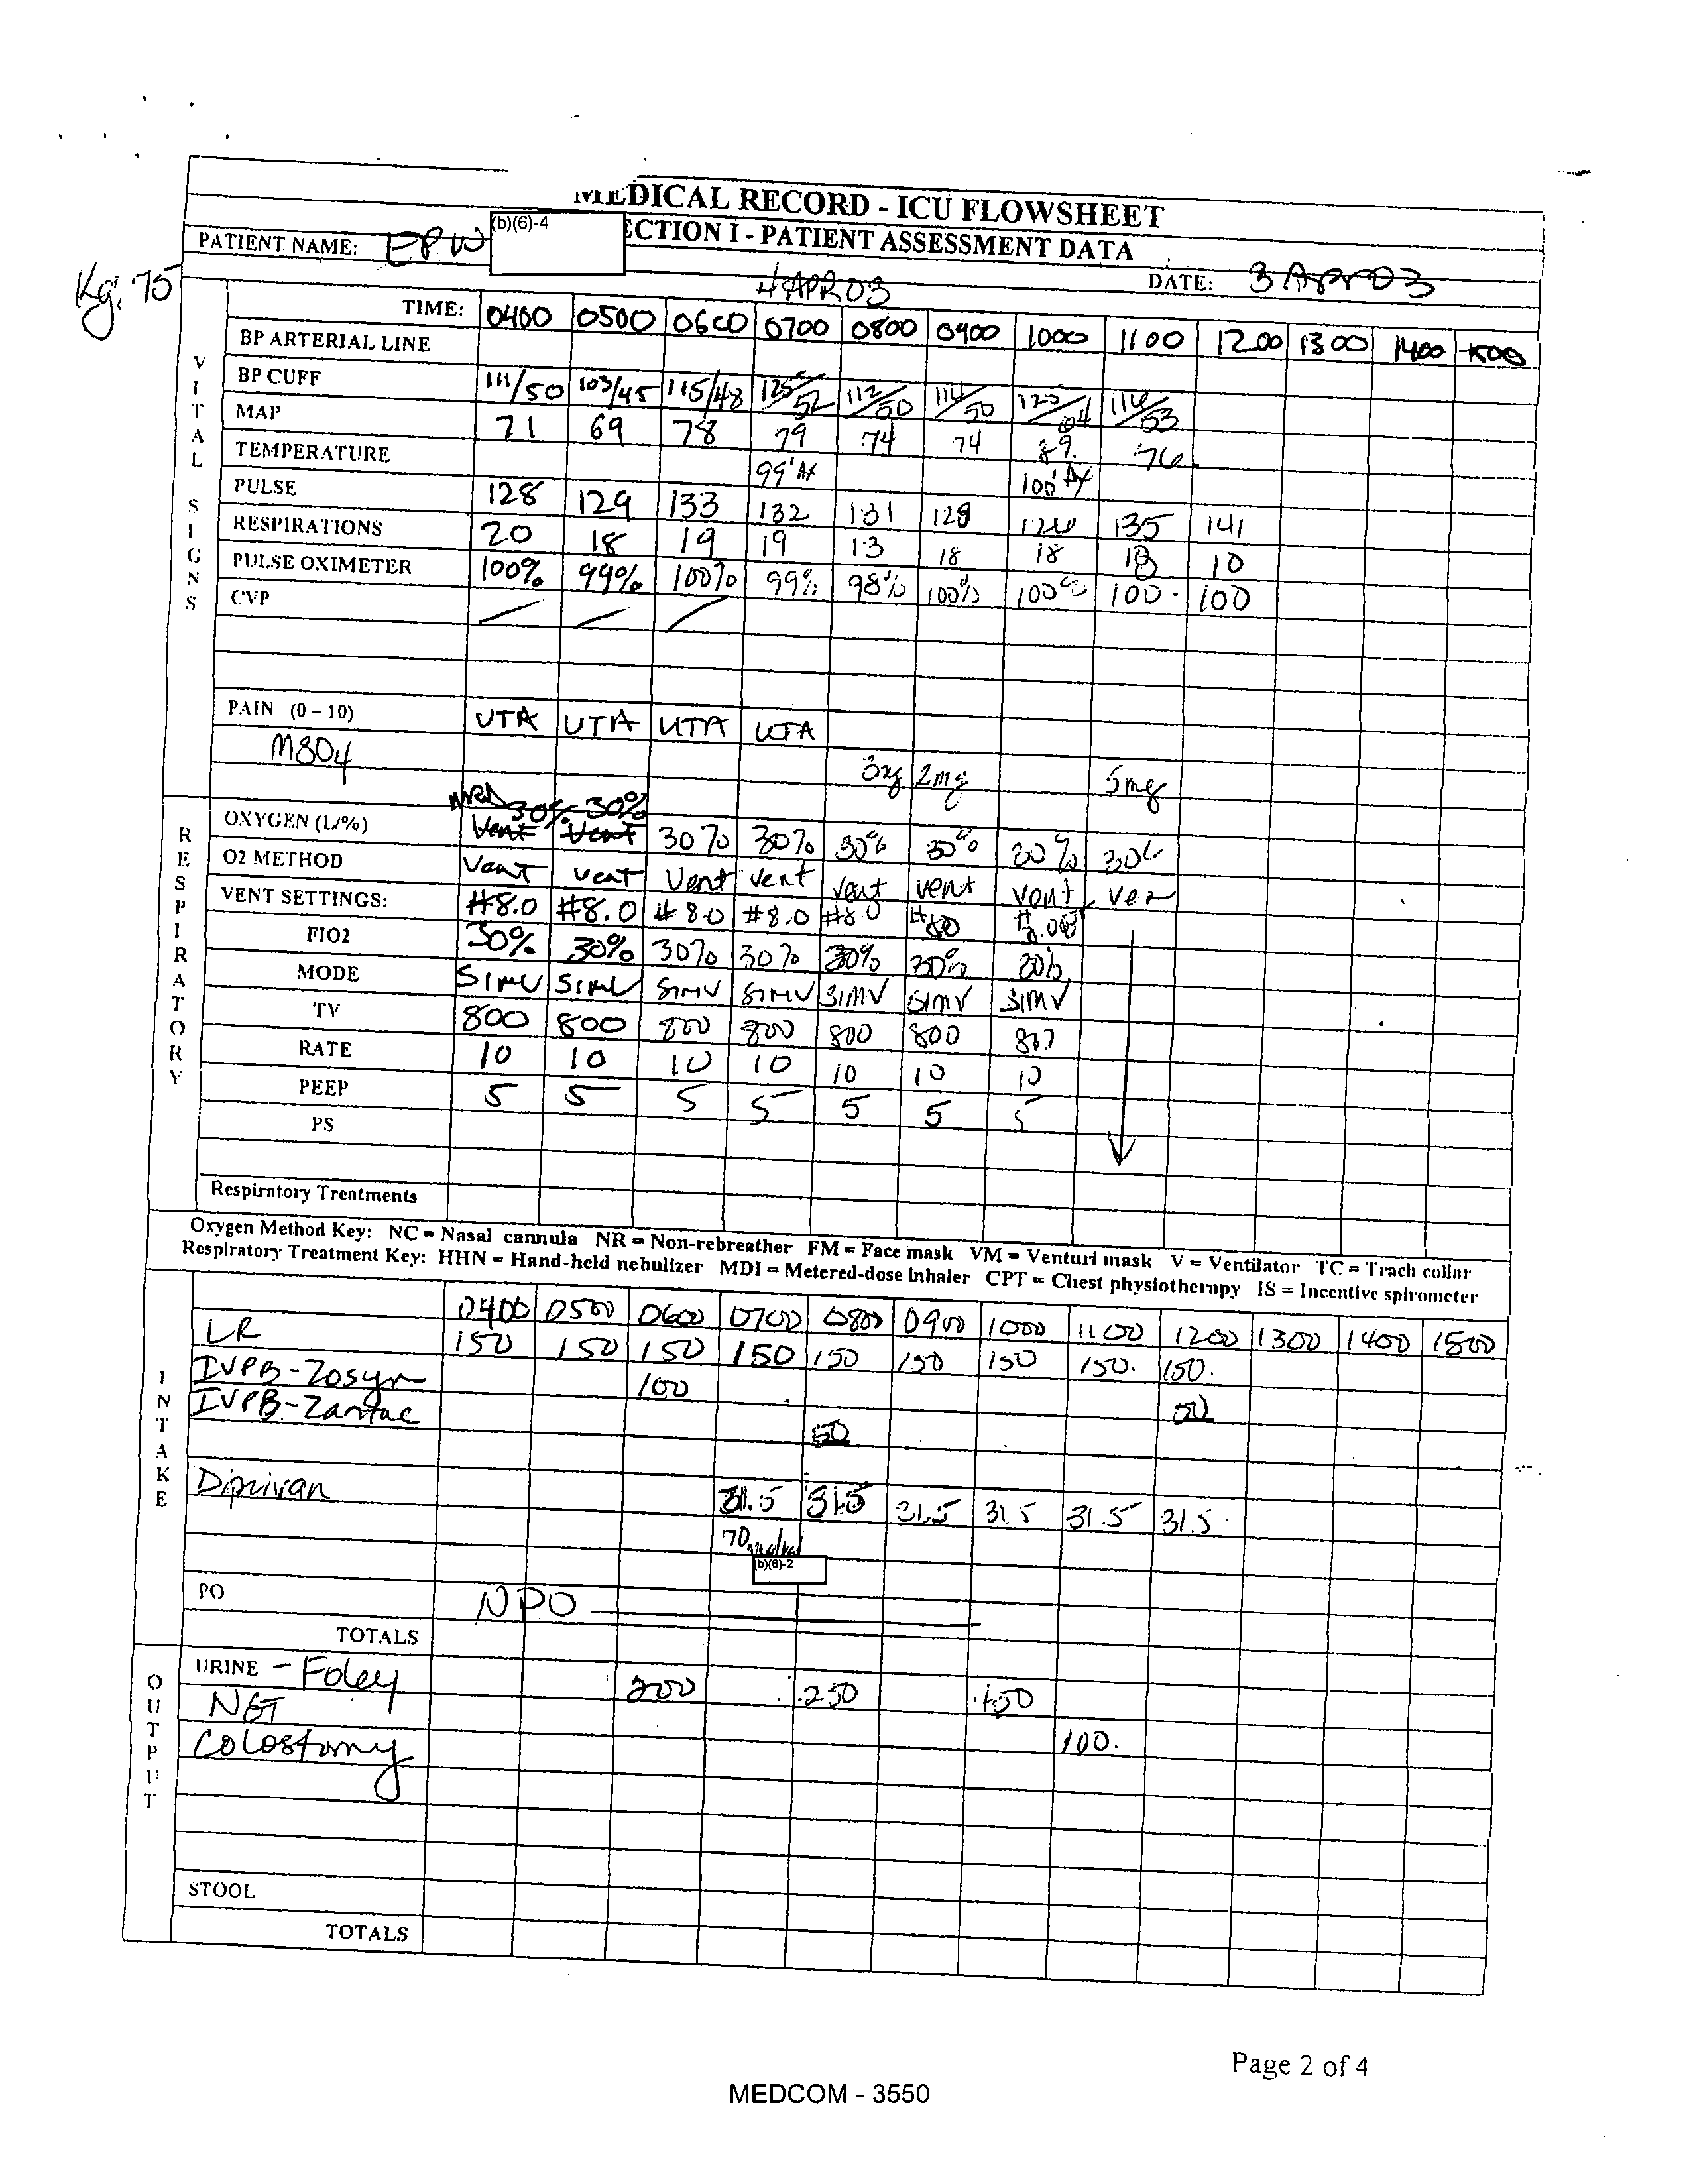 MEDICAL RECORD - ICU FLOWSHEET
(b)(6)-4
ECTION I - PATIENT ASSESSMENT DATA
PATIENT NAME: EPW
DATE: 3 Apr 03
Kg. 75
4 APR 03
TIME: 0400 0500 0600 0700 0800 0900 1000 1100 1200 1300 1400 1500
VITAL SIGNS
BP ARTERIAL LINE
BP CUFF 111/50 103/45 115/48 125/52 112/50 114/50 125/64 114/53
MAP 71 69 78 79 74 74 89 76
TEMPERATURE 99' Ax 100' Ax
PULSE 128 129 133 132 131 129 135 141
RESPIRATIONS 20 18 19 19 13 18 18 18 10
PULSE OXIMETER 100% 99% 100% 99% 98% 100% 100% 100 100
CVP
PAIN (0 – 10) UTA UTA UTA UTA
MSO4 2mg 5mg
RESPIRATORY
OXYGEN (L/%) 30% 30% 30% 30% 30% 30% 30% 30%
Vent Vent
O2 METHOD Vent Vent Vent Vent Vent Vent Vent
VENT SETTINGS: #8.0 #8.0 #8.0 #8.0 #8.0
FIO2 30% 30% 30% 30% 30% 30% 30%
MODE SIMV SIMV SIMV SIMV SIMV SIMV SIMV
TV 800 800 800 800 800 800 800
RATE 10 10 10 10 10 10 10
PEEP 5 5 5 5 5 5 5
PS
Respiratory Treatments
Oxygen Method Key: NC = Nasal cannula NR = Non-rebreather FM = Face mask VM = Venturi mask V = Ventilator TC = Trach collar
Respiratory Treatment Key: HHN = Hand-held nebulizer MDI = Metered-dose inhaler CPT = Chest physiotherapy IS = Incentive spirometer
0400 0500 0600 0700 0800 0900 1000 1100 1200 1300 1400 1500
INTAKE
LR 150 150 150 150 150 150 150 150. 150.
IVPB-Zosyn 100 50
IVPB-Zantac 50
Diprivan 31.5 31.5 31.5 31.5 31.5 31.5
70
(b)(6)-2
PO NPO
TOTALS
OUTPUT
URINE - Foley 200 250
NGT
Colostomy 100.
STOOL
TOTALS
Page 2 of 4
MEDCOM - 3550